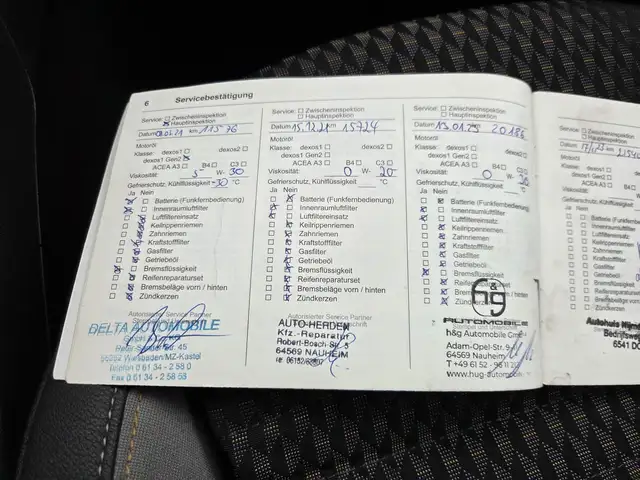 6 Servicebestätigung
Service: Zwischeninspektion
Hauptinspektion
Datum km 11576
Motoröl
Klasse: dexos1 dexos2
dexos1 Gen2
ACEA A3 B4 C3
Viskosität 5 W- 30
Gefrierschutz, Kühlflüssigkeit -30 °C
Ja Nein
Batterie (Funkfernbedienung)
Innenraumluftfilter
Luftfiltereinsatz
Keilrippenriemen
Zahnriemen
Kraftstofffilter
Gasfilter
Getriebeöl
Bremsflüssigkeit
Reifenreparaturset
Bremsbeläge vorn / hinten
Zündkerzen
Autorisierter Service Partner
DELTA AUTOMOBILE
55252 Wiesbaden/MZ-Kastel
Telefon 0 61 34 - 2 58 0
Fax 0 61 34 - 2 58 58
Service: Zwischeninspektion
Hauptinspektion
Datum 15.12.21 km 15724
Motoröl
Klasse: dexos1 dexos2
dexos1 Gen2
ACEA A3 B4 C3
Viskosität 0 W- 20
Gefrierschutz, Kühlflüssigkeit °C
Ja Nein
Batterie (Funkfernbedienung)
Innenraumluftfilter
Luftfiltereinsatz
Keilrippenriemen
Zahnriemen
Kraftstofffilter
Gasfilter
Getriebeöl
Bremsflüssigkeit
Reifenreparaturset
Bremsbeläge vorn / hinten
Zündkerzen
Autorisierter Service Partner
AUTO-HERDEN
Kfz.-Reparatur
Robert-Bosch Str. 5
64569 NAUHEIM
Service: Zwischeninspektion
Hauptinspektion
Datum km 20186
Motoröl
Klasse: dexos1 dexos2
dexos1 Gen2
ACEA A3 B4 C3
Viskosität 0 W-
Gefrierschutz, Kühlflüssigkeit °C
Ja Nein
Batterie (Funkfernbedienung)
Innenraumluftfilter
Luftfiltereinsatz
Keilrippenriemen
Zahnriemen
Kraftstofffilter
Gasfilter
Getriebeöl
Bremsflüssigkeit
Reifenreparaturset
Bremsbeläge vorn / hinten
Zündkerzen
h&g
AUTOMOBILE
h&g Automobile GmbH
Adam-Opel-Str.
64569 Nauheim
www.hug-automobile
Service: Zwischeninspektion
Hauptinspektion
Datum
Motoröl
Klasse: dexos1
dexos1 Gen2
ACEA A3
Viskosität
Gefrierschutz, Kühlflüssig
Ja Nein
Batterie (Funkfern
Innenraumluftfilter
Luftfiltereinsatz
Keilrippenriemen
Zahnriemen
Kraftstofffilter
Gasfilter
Getriebeöl
Bremsflüssigkeit
Reifenreparaturset
Bremsbeläge vorn
Zündkerzen
Autohuis
6541 DC